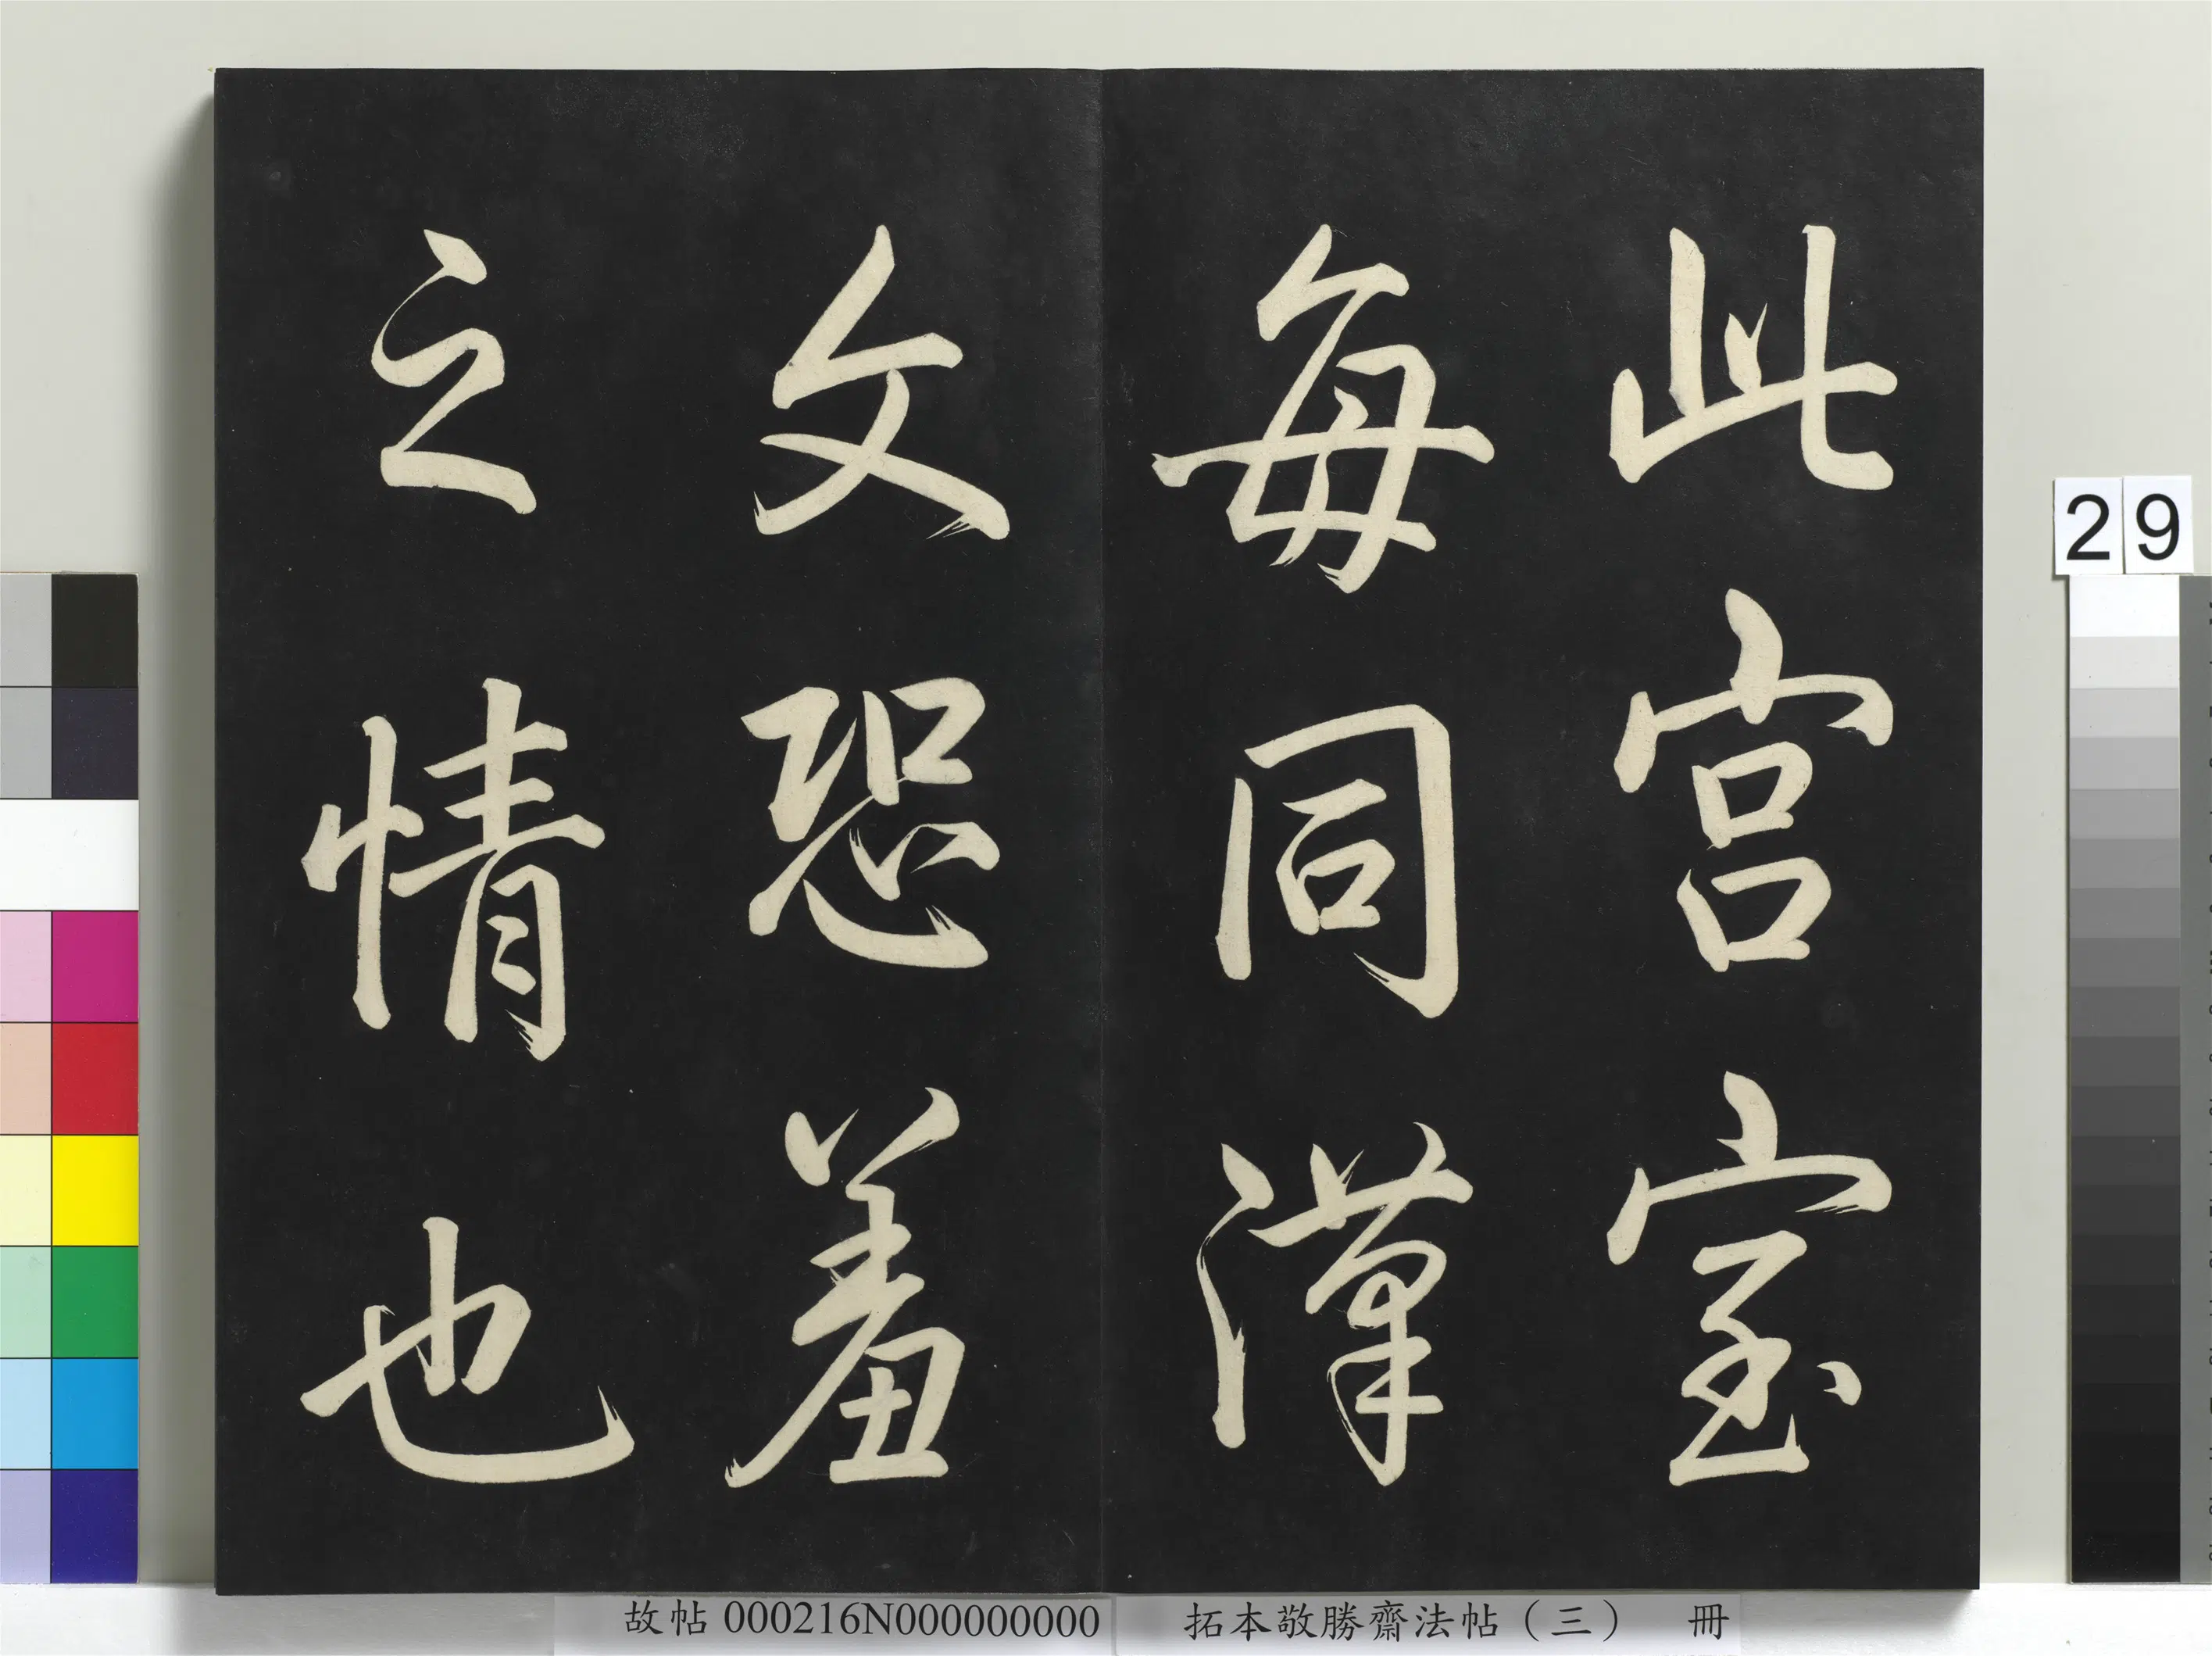 此宮室
每同漢
文恐羞
之情也
29
故帖000216N000000000 拓本敬勝齋法帖（三） 冊